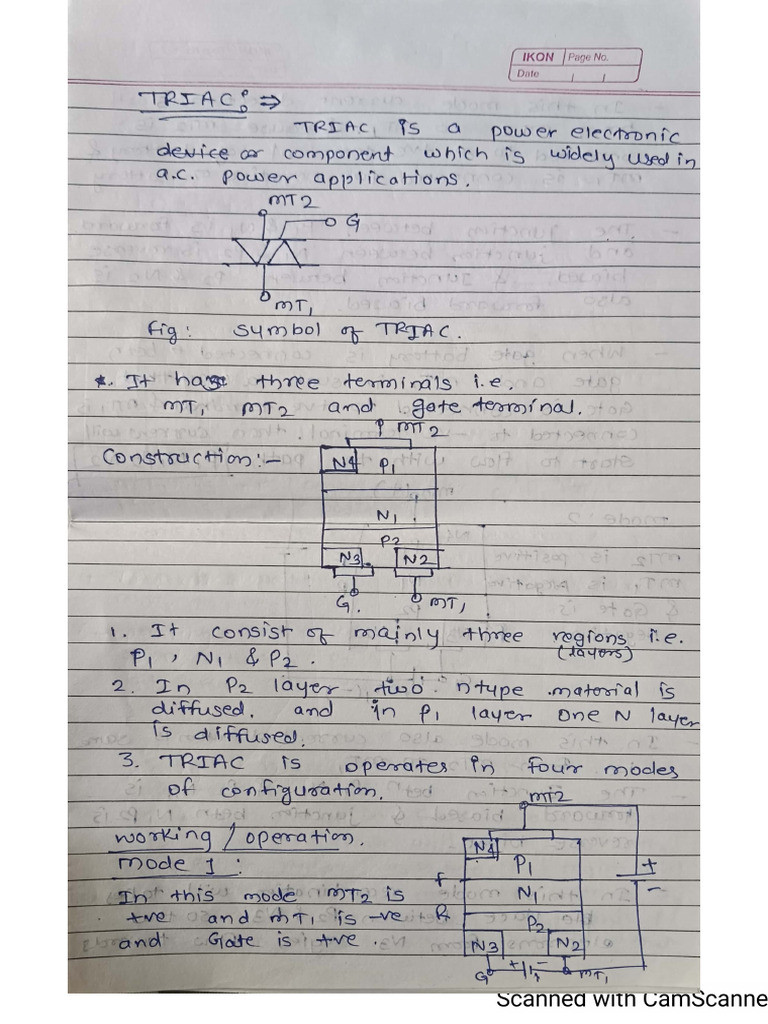 IKON Page No.
Date
TRIAC: ⇒
TRIAC is a power electronic
device or component which is widely used in
a.c. power applications.
MT2
G
MT1
fig: symbol of TRIAC.
*. It has three terminals i.e.
MT1 MT2 and gate terminal.
MT2
Construction:-
N4 P1
N1
P2
N3 N2
G. MT1
1. It consist of mainly three regions i.e.
(layers)
P1, N1 & P2.
2. In P2 layer two n type material is
diffused. and in P1 layer one N layer
is diffused.
3. TRIAC is operates in four modes
of configuration.
MT2
working / operation.
mode 1:
N4
P1
f
N1
+
-
In this mode MT2 is
+ve and MT1 is -ve
R
P2
and Gate is +ve.
N3 N2
G + - MT1
Scanned with CamScanne